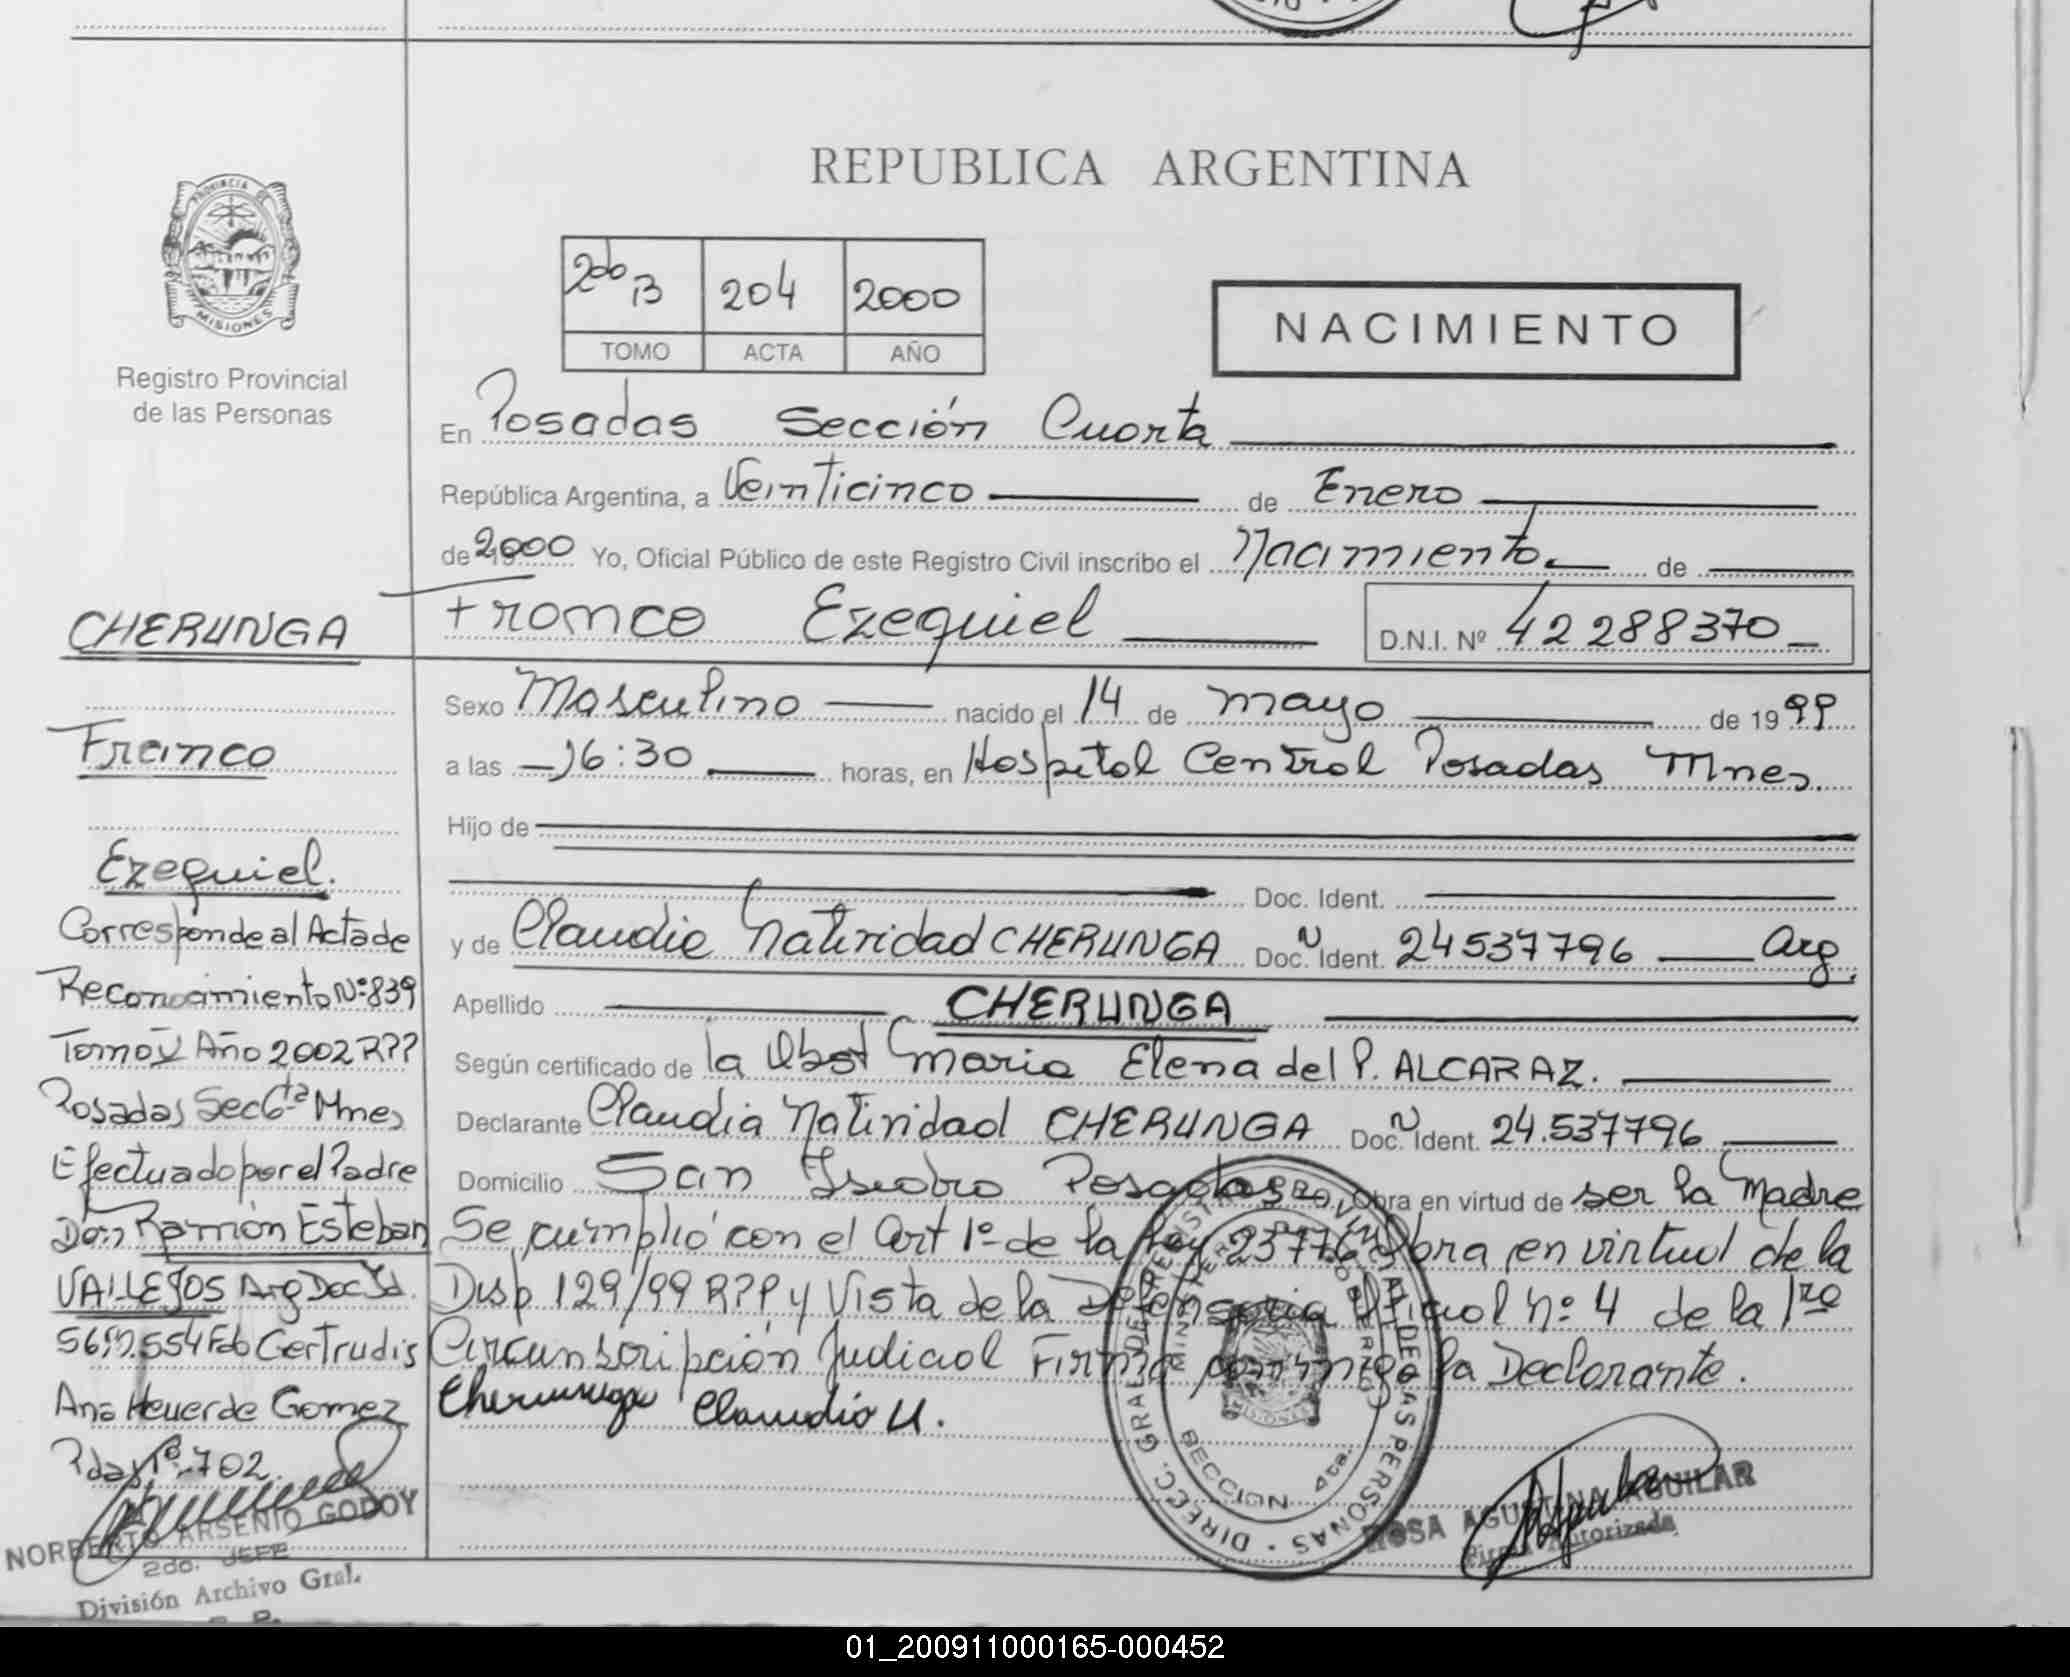 REPUBLICA ARGENTINA
PROVINCIA DE
MISIONES
Registro Provincial
de las Personas
2do B 204 2000
TOMO ACTA AÑO
NACIMIENTO
En Posadas Sección Cuarta
República Argentina, a Veinticinco de Enero
de 2000 Yo, Oficial Público de este Registro Civil inscribo el Nacimiento de
Franco Ezequiel D.N.I. Nº 42288370
Sexo Masculino nacido el 14 de mayo de 1999
a las 16:30 horas, en Hospital Central Posadas Mnes.
Hijo de
Doc. Ident.
y de Claudia Natividad CHERUNGA Doc. N Ident. 24537796 Arg.
Apellido CHERUNGA
Según certificado de la Obst Maria Elena del P. ALCARAZ.
Declarante Claudia Natividad CHERUNGA Doc. N Ident. 24.537796
Domicilio San Isidro Posadas Obra en virtud de ser la Madre
Se cumplió con el Art 1º de la Ley 23776 Obra en virtud de la
Disp 129/99 RPP y Vista de la Defensoria Oficial Nº 4 de la 1ra
Circunscripción Judicial Firma conmigo la Declarante.
Cherunga Claudia N.
CHERUNGA
Franco
Ezequiel.
Corresponde al Acta de
Reconocimiento Nº 839
Tomo V Año 2002 RPP
Posadas Sec 6ta Mnes
Efectuado por el Padre
Don Ramón Esteban
VALLEJOS Arg Doc Id.
Gertrudis
Ana Heuer de Gomez
Pdas Nº 702
NORBERTO ARSENIO GODOY
2do. JEFE
División Archivo Gral.
DIRECC. GRAL. DE REGISTRO PROVINCIAL DE LAS PERSONAS
MINISTERIO DE GOBIERNO
MISIONES
SECCION 4ta.
ROSA AGUSTINA AGUILAR
Firma Autorizada
01_200911000165-000452